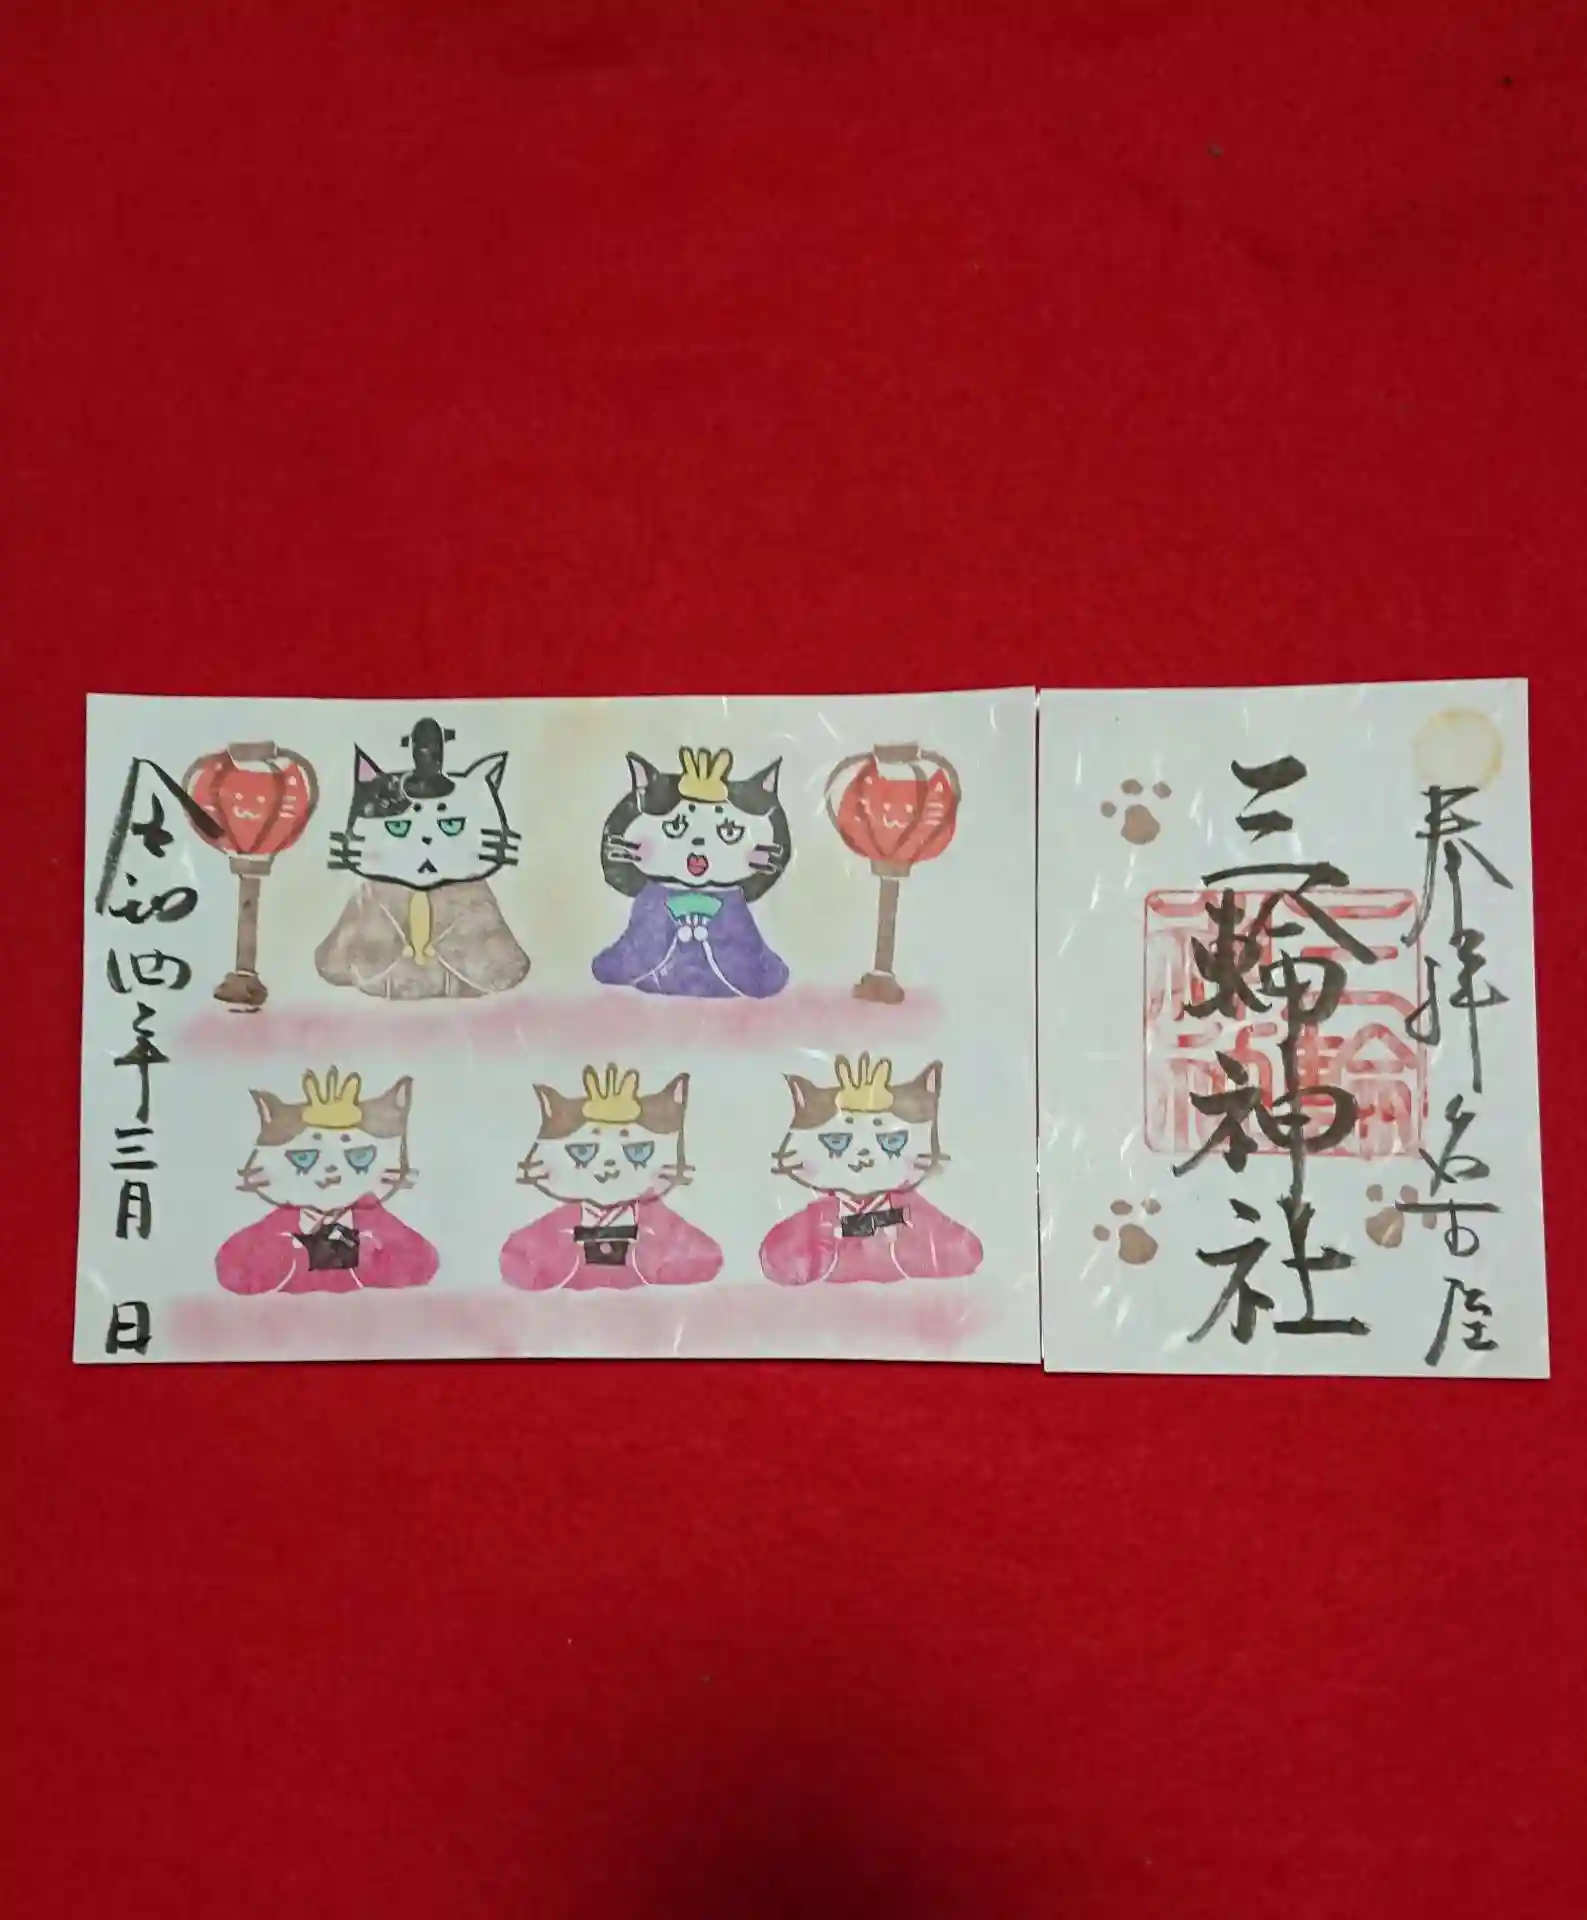 奉拝 名古屋
三輪神社
令和四年三月 日